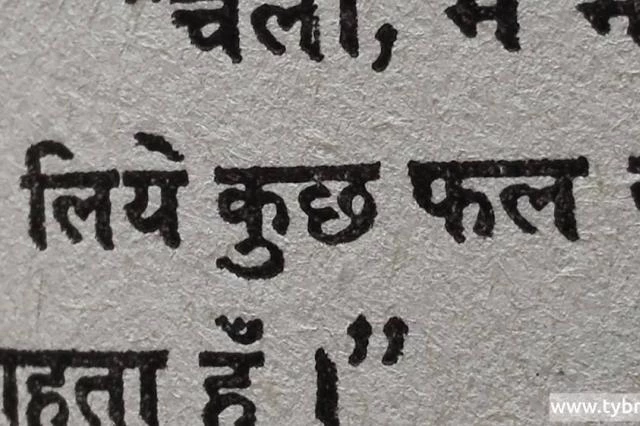 "चलो, मैं
लिये कुछ फल
चाहता हूँ ।"
www.tybr